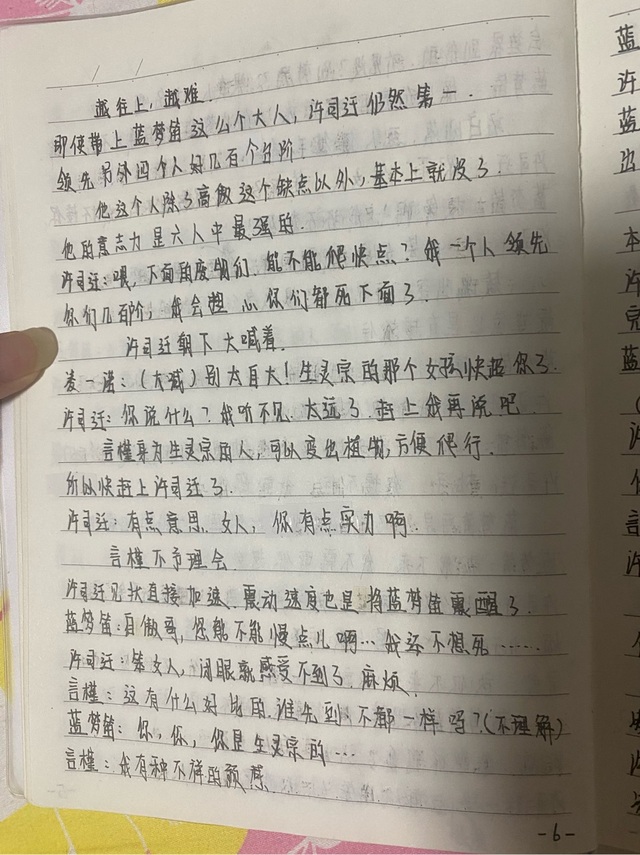 越往上，越难.
即使带上蓝梦笛这么个大人，许司迁仍然第一.
领先另外四个人好几百个台阶
他这个人除了高傲这个缺点以外，基本上就没了.
他的意志力是六人中最强的.
许司迁：喂，下面的废物们，能不能爬快点？我一个人领先
你们几百阶，我会担心你们都死下面了.
许司迁朝下大喊着.
凌一强：（大喊）别太自大！生灵宗的那个女孩快超你了.
许司迁：你说什么？我听不见，太远了，赶上我再说吧
言槿身为生灵宗的人，可以变出植物，方便爬行.
所以快赶上许司迁了.
许司迁：有点意思，女人，你有点实力啊.
言槿不予理会
许司迁见状直接加速，震动速度也是将蓝梦笛震醒了.
蓝梦笛：自傲哥，您能不能慢点儿啊…我还不想死……
许司迁：笨女人，闭眼就感受不到了，麻烦.
言槿：这有什么好比的，谁先到，不都一样吗？（不理解）
蓝梦笛：你，你，你是生灵宗的…
言槿：我有种不祥的预感
-6-
蓝
许
蓝
出
本
许
完
蓝
（
许
言
许